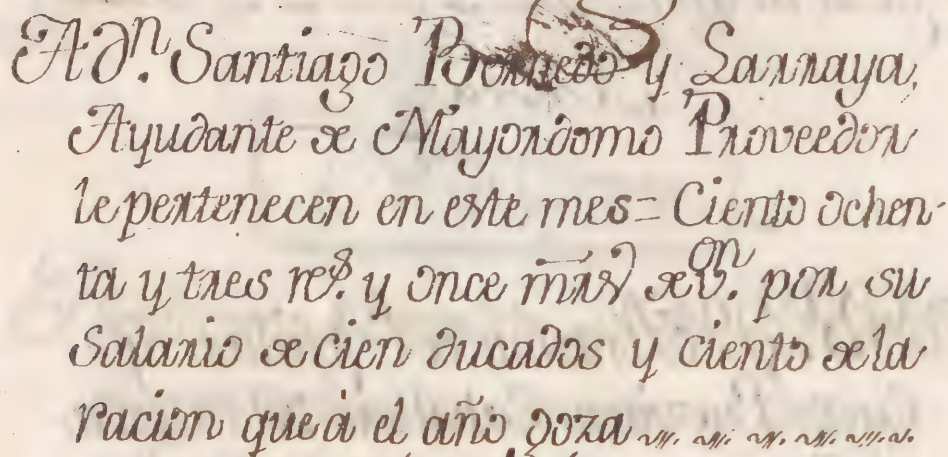 A Dn. Santiago Bonnedo y Larraya,
Ayudante de Mayordomo Proveedor
le pertenecen en este mes= Ciento ochen-
ta y tres rs. y once mrs. de Vn. por su
Salario de cien ducados y ciento de la
racion que à el año goza